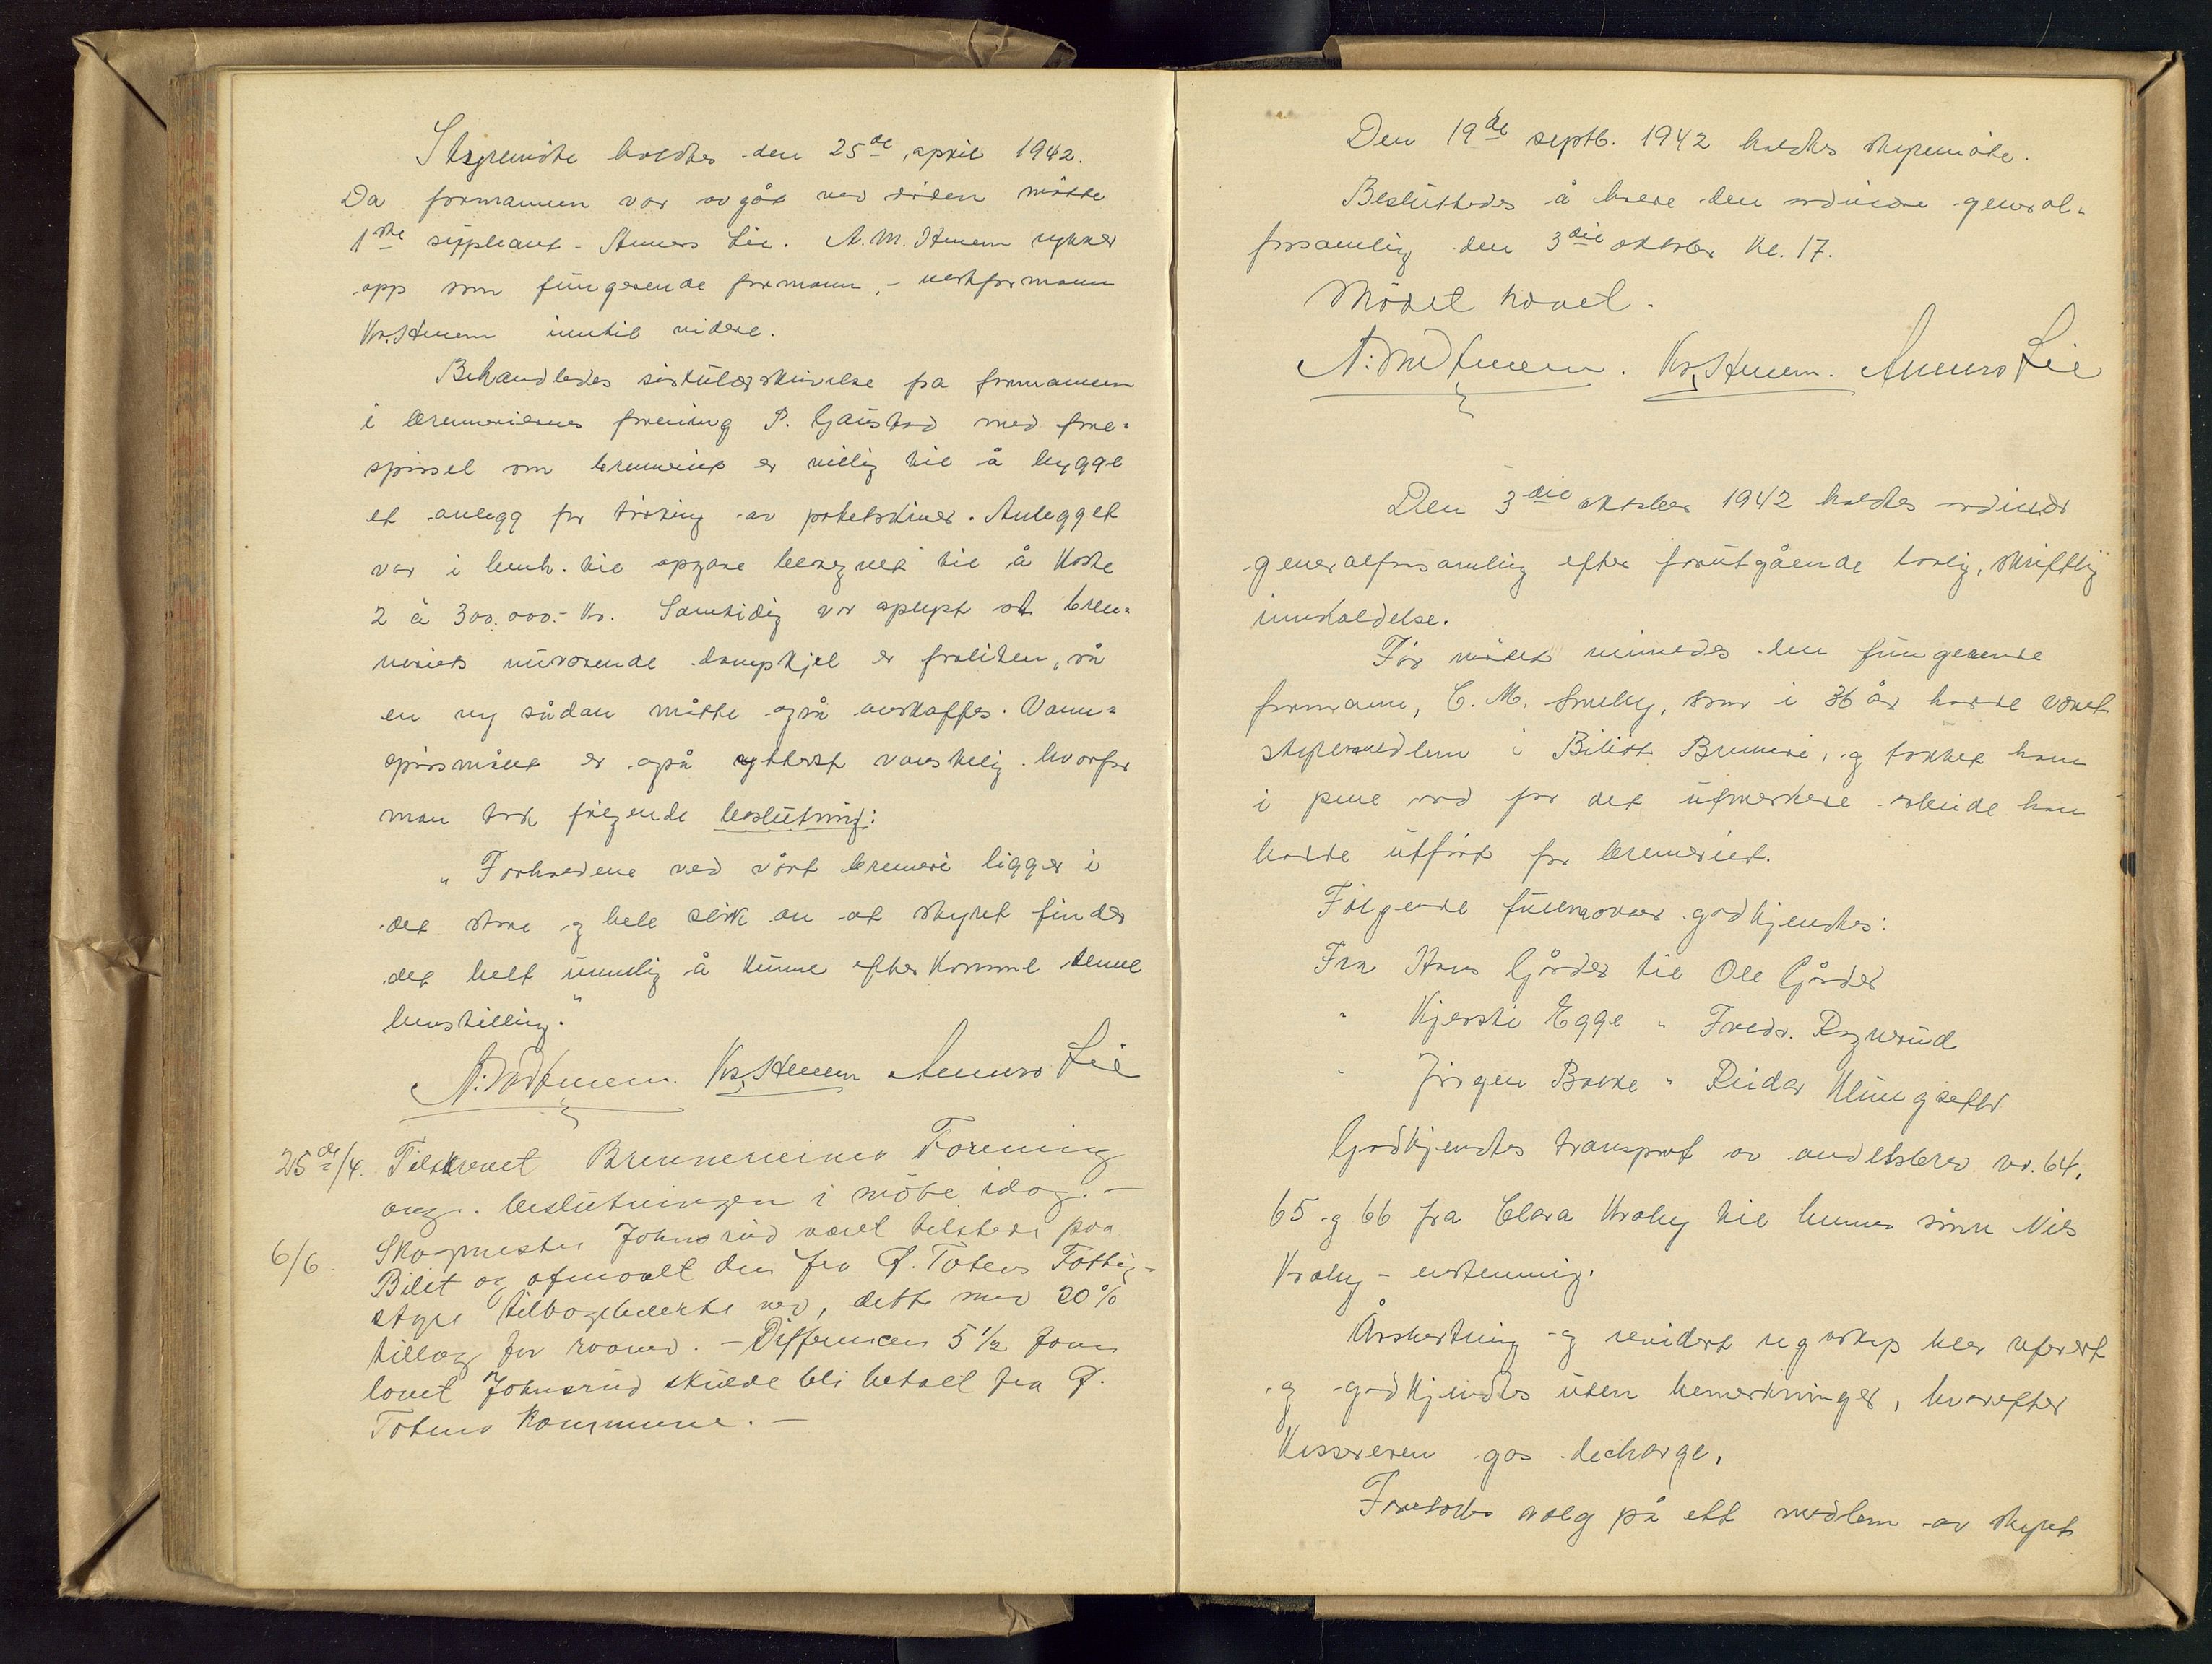 Styremøte holdtes den 25de april 1942.
Da formannen var avgåt ved døden møtte
1ste suppleant - Anners Lie. A. M. Hmem rykker
opp som fungerende formann, - nestformann
Kr. Hmem inntil videre.
Behandledes sirkulærskrivelse fra formannen
i brenneriernes forening P. Gaustad med fore-
spørsel om brenneriet er villig til å bygge
et anlegg for tørking av potetskiver. Anlegget
var i henh. til opgave beregnet til å koste
2 à 300.000.- Kr. Samtidig var oplyst at bren-
neriets nuværende dampkjel er for liten, så
en ny sådan måtte også anskaffes. Vann-
spørsmålet er også ytterst vanskelig. hvorfor
man tok følgende beslutning:
„Forholdene ved vårt brenneri ligger i
det store og hele slik an at styret finder
det helt umulig å kunne efterkomme denne
henstilling."
A. M. Hmem. Kr. Hmem Anners Lie
25de/4. Tilskrevet Brenneriernes Forening
ang. beslutningen i møte idag. -
6/6. Skogmester Johnsrud været tilstede paa
Bilit og opmaalt den fra Ø. Totens Fattig-
styre tilbagekjøpte ved, dette med 20%
tillæg for raaved. - Differencen 5 1/2 favn
lovet Johnsrud skulde bli betalt fra Ø.
Totens Kommune. -
Den 19de septb. 1942 holdtes styremøte.
Besluttedes å holde den ordinære general-
forsamling den 3die oktober kl. 17.
Mødet hævet.
A. M. Hmem. Kr. Hmem. Anners Lie
Den 3die oktober 1942 holdtes ordinær
generalforsamling efter forutgående lovlig, skriftlig
innkaldelse.
Før møtet minnedes den fungerende
formann, C. M. Smeby, som i 36 år hadde vært
styremedlem i Bilitt Brenneri, og takket ham
i pene ord for det utmerkede arbeide han
hadde utført for brenneriet.
Følgende fullmakter godkjendtes:
Fra Hans Gårder til Ole Gårder
" Kjersti Egge " Fredr. Rognerud
" Jørgen Bakke " Reidar Klungseter
Godkjendtes transport av andelsbrev nr. 64,
65 og 66 fra Clara Kraby til hennes sønn Nils
Kraby - enstemmig.
Årsberetning og revidert regnskap blev referert
og godkjendtes uten bemerkninger, hvorefter
kassereren gas decharge.
Foretokes valg på ett medlem av styret